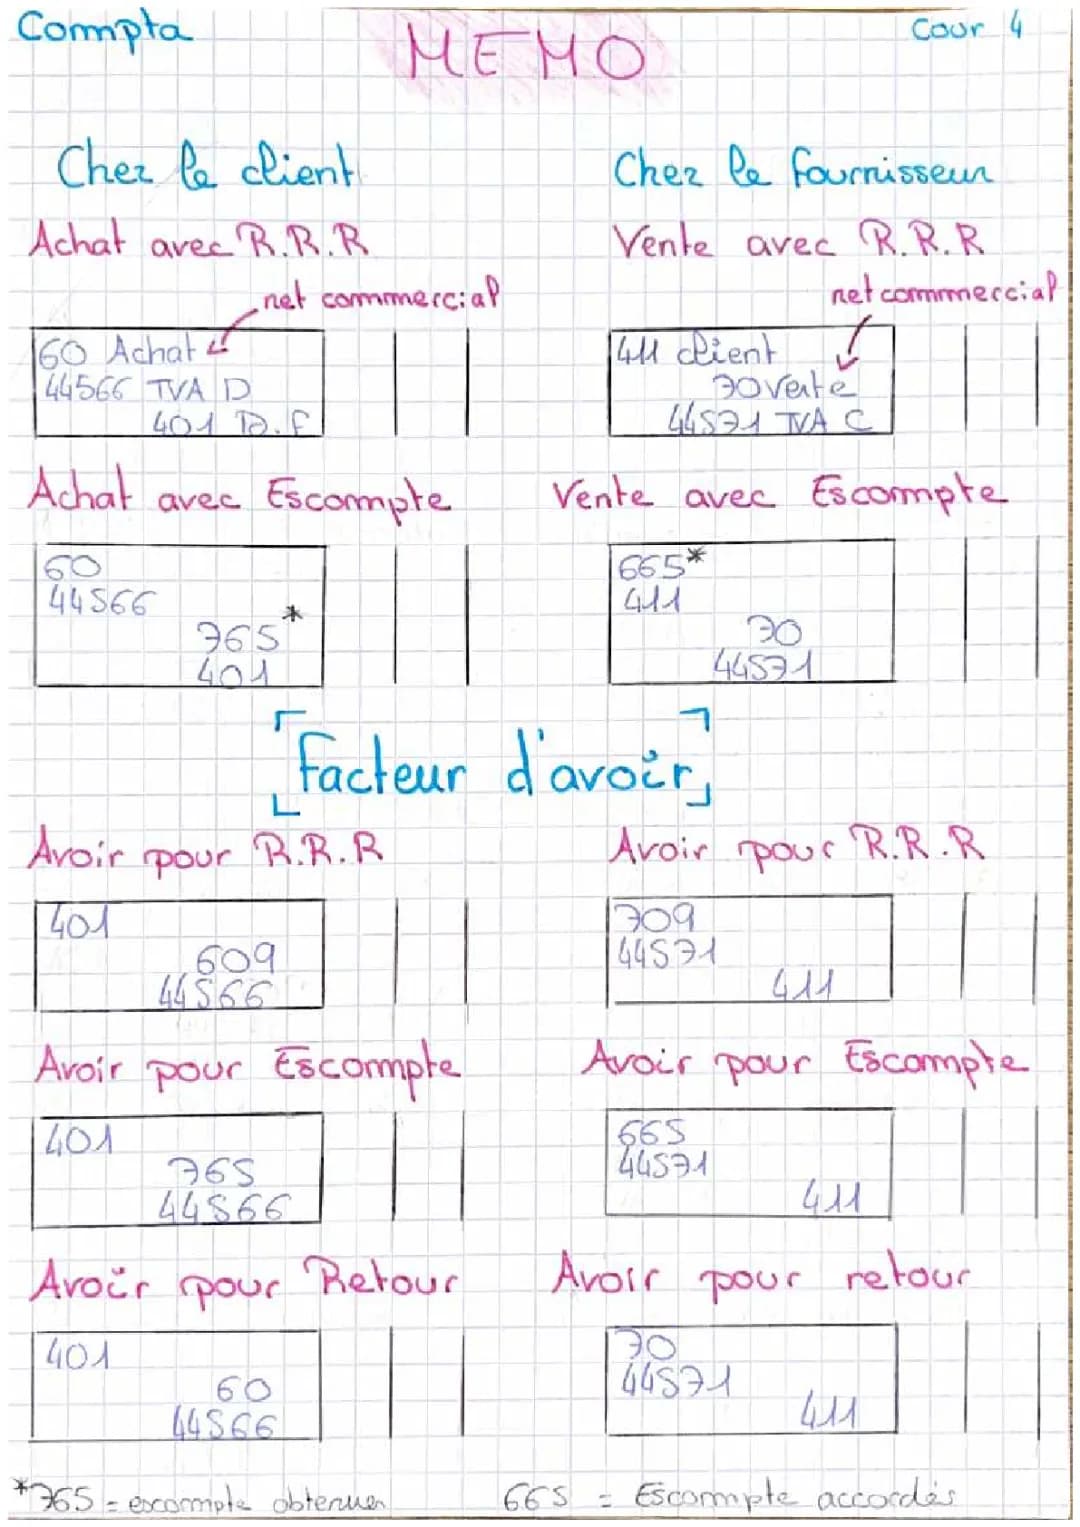 Compta
MEMO
Cour 4
Chez le client
Chez le fournisseur
Achat avec R.R.R
Vente avec R.R.R
net commercial
net commercial
60 Achat
44566 TVA D
401 D.F
411 client
70 Vente
44571 TVA C
Achat avec Escompte
Vente avec Escompte
60
44566
765*
401
665*
411
70
44571
Facteur d'avoir
Avoir pour R.R.R
Avoir pour R.R.R
401
609
44566
709
44571
411
Avoir pour Escompte
Avoir pour Escompte
401
765
44566
665
44571
411
Avoir pour Retour
Avoir pour retour
401
60
44566
70
44571
411
*765 = escompte obtenuer
665 = Escompte accordés